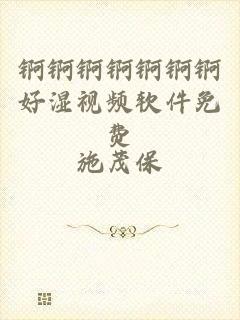 锕锕锕锕锕锕锕
好湿视频软件免
费
施茂保